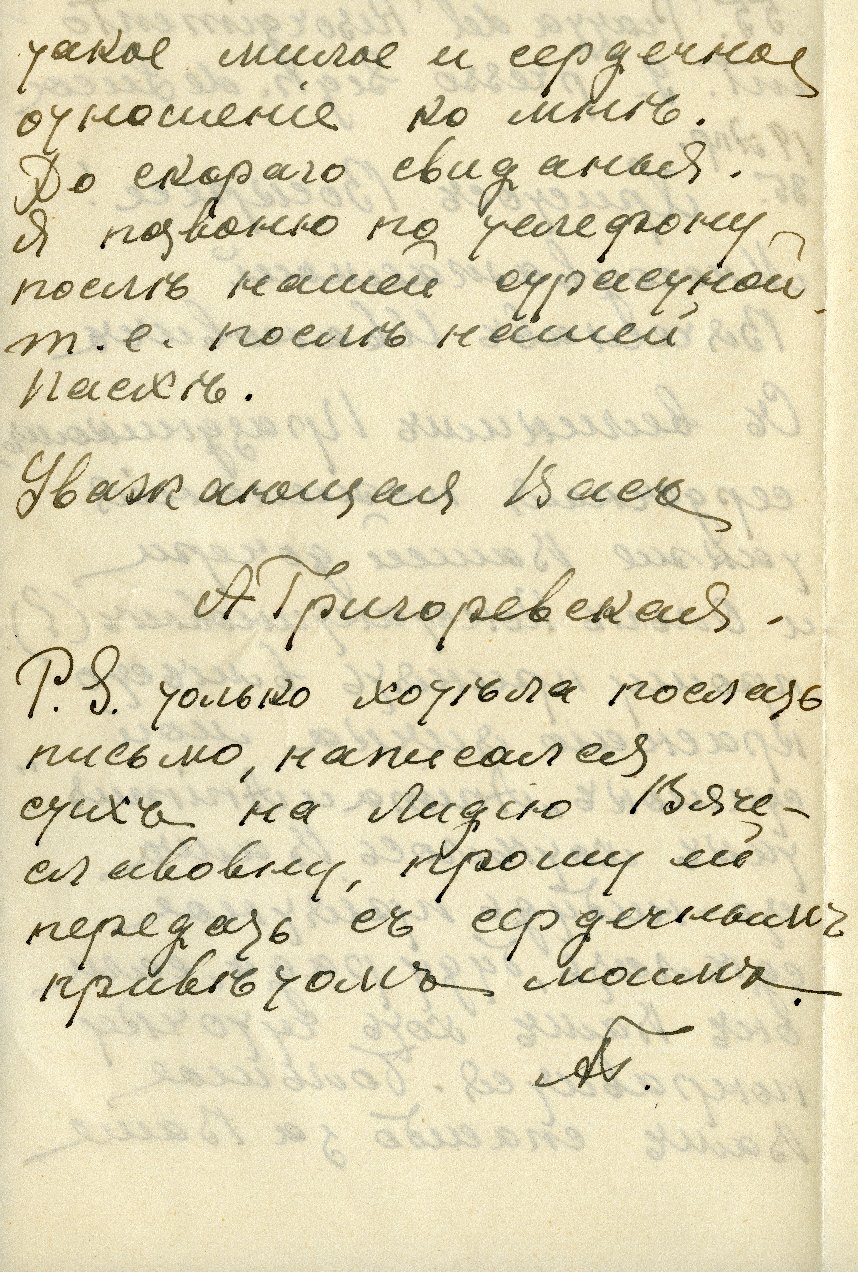 такое милое и сердечное
отношенiе ко мнѣ.
До скораго свиданья.
Я позвоню по телефону
послѣ нашей страстной
т.е. послѣ нашей
Пасхѣ.
Уважающая Васъ
А Григоревская.
P.S. только хотѣла послать
письмо, написался
стихъ на Лидiю Вяче-
славовну, прошу ей
передать съ сердечнымъ
привѣтомъ моимъ.
АГ.